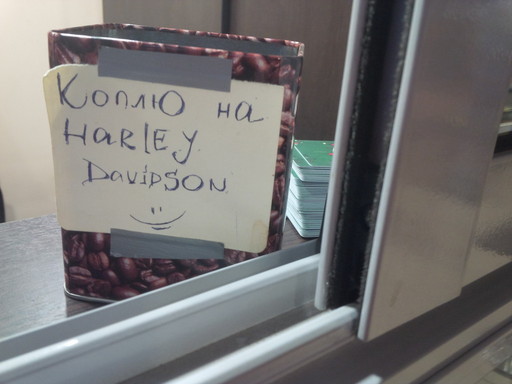 Коплю на
HARLEY
DAVIDSON